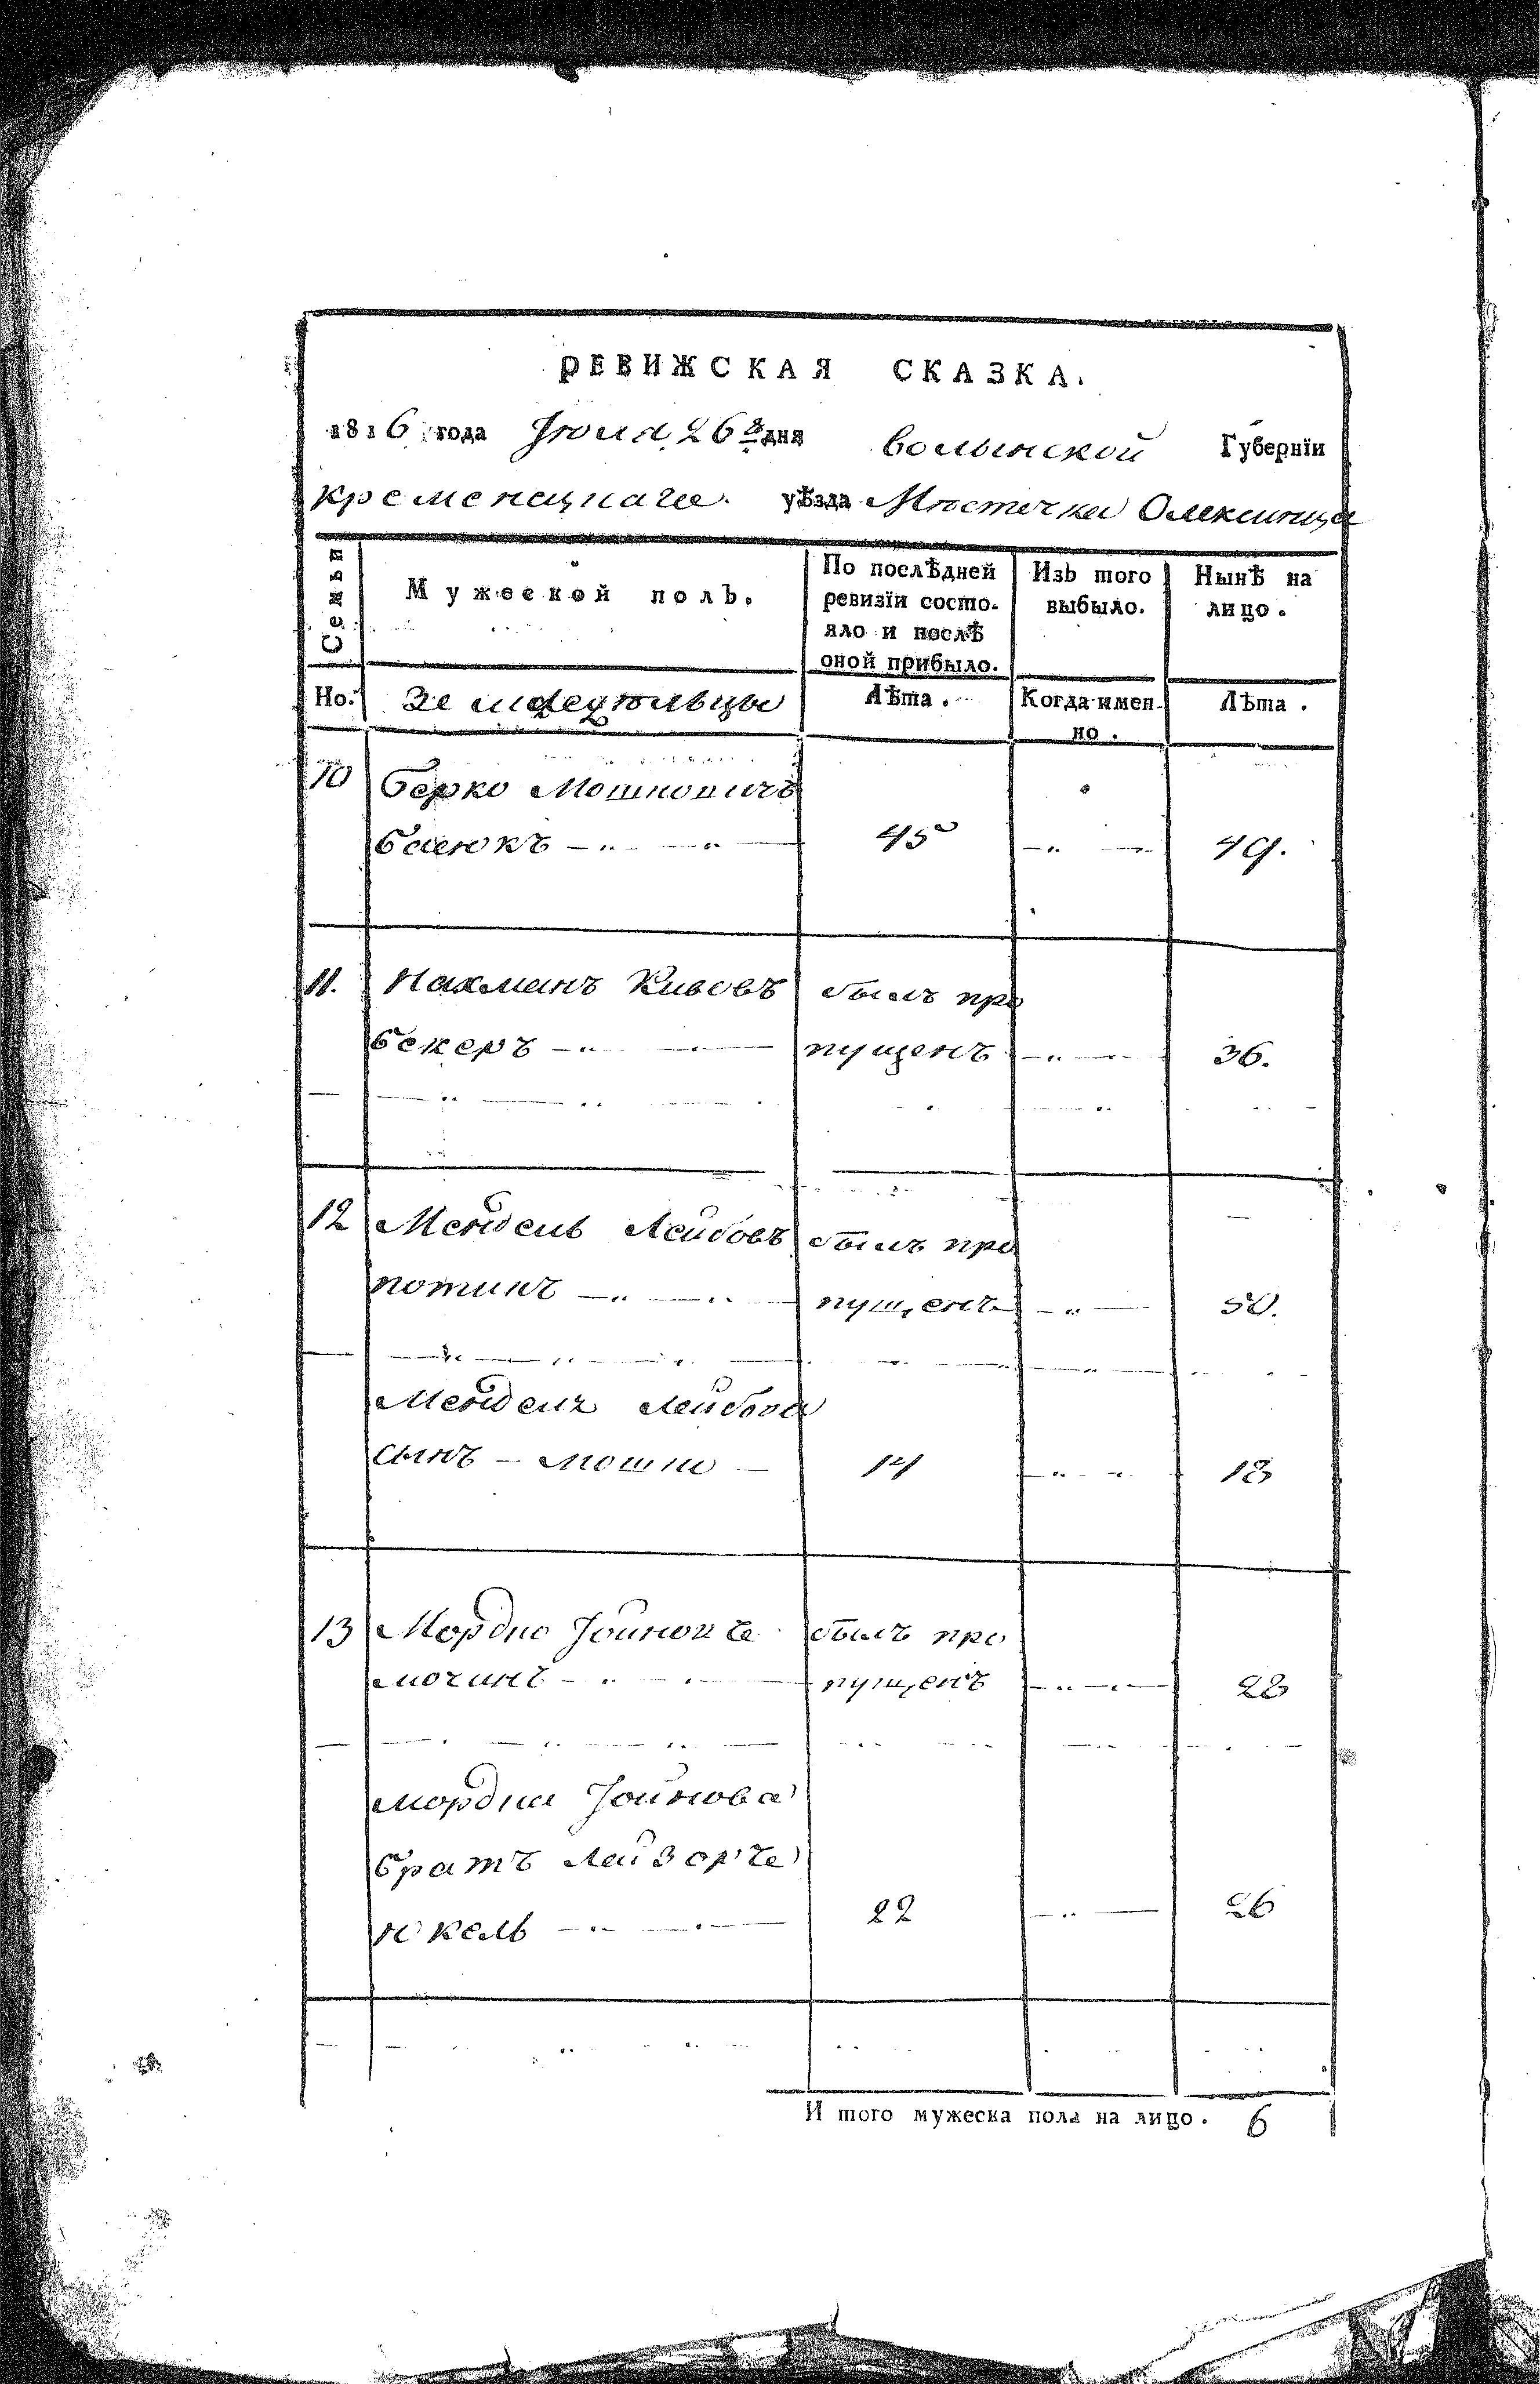 РЕВИЖСКАЯ СКАЗКА.
1816 года Июля 26 го дня Волынской Губернїи
Кременецкаго уѣзда Мѣстечка Олексинца
Семьи
Мужеской полъ.
По послѣдней ревизїи состояло и послѣ оной прибыло.
Изъ того выбыло.
Нынѣ на лицо.
Но.
Лѣта.
Когда имен-
но.
Лѣта.
10 Берко Мошковичъ
45 49.
11. Нахманъ Кивовъ былъ про
Бекеръ пущенъ 36.
12 Мендель Лейбовъ былъ про
пущенъ 50.
Менделя Лейбова
сынъ Мошко 14 18
13 Мордко Іойновъ былъ про
пущенъ 28
Мордка Іойнова
братъ Лейзоръ
Юкель 22 26
И того мужеска пола на лицо. 6